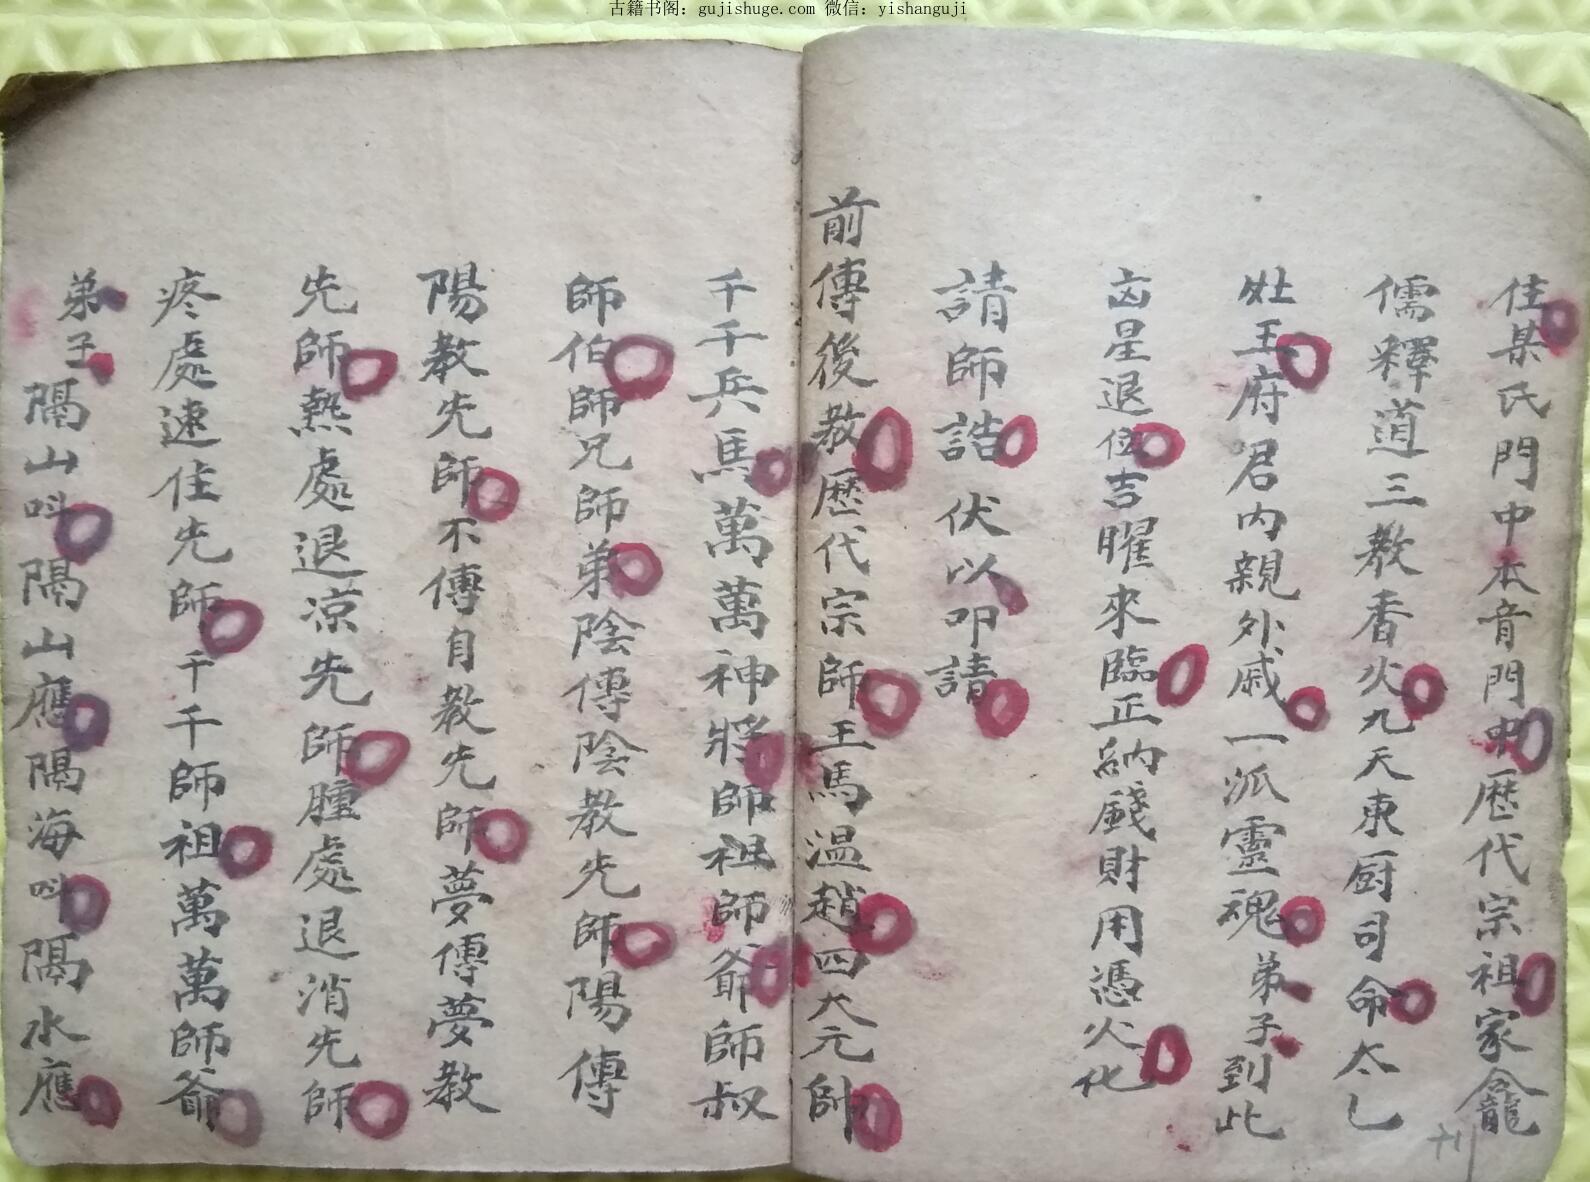 古籍书阁：gujishuge.com 微信：yishanguji
住某氏門中本音門中歷代宗祖家龕
儒釋道三教香火九天東厨司命太乙
灶王府君内親外戚一派靈魂弟子到此
凶星退位吉曜來臨正納錢財用憑火化
請師誥伏以叩請
前傳後教歷代宗師王馬温趙四大元帥
千千兵馬萬萬神將師祖師爺師叔
師伯師兄師弟陰傳陰教先師陽傳
陽教先師不傳自教先師夢傳夢教
先師熱處退凉先師腫處退消先師
疼處速住先師千千師祖萬萬師爺
弟子隔山叫隔山應隔海叫隔水應